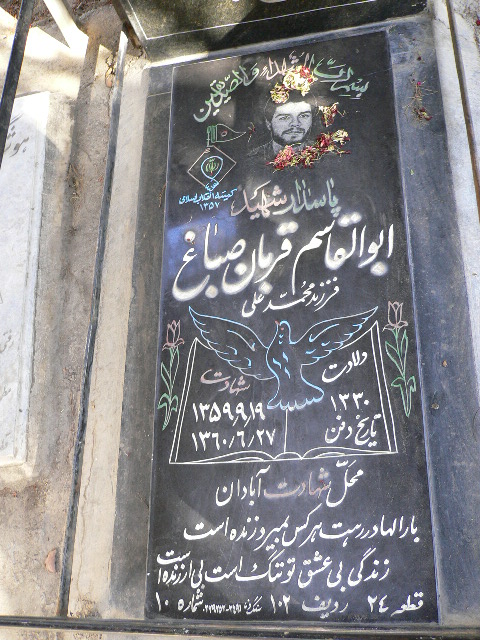 بسم رب الشهداء و الصدیقین
کمیته انقلاب اسلامی
۱۳۵۷
پاسدار شهید
ابوالقاسم قربان صباغ
فرزند محمدعلی
ولادت
۱۳۳۰
شهادت
۱۳۵۹/۹/۱۹
تاریخ دفن
۱۳۶۰/۶/۲۷
محل شهادت آبادان
بارالها در رهت هر کس بمیرد زنده است
زندگی بی عشق تو ننگ است بی ارزنده است
قطعه ۲۴ ردیف ۱۰۲ شماره ۱۰